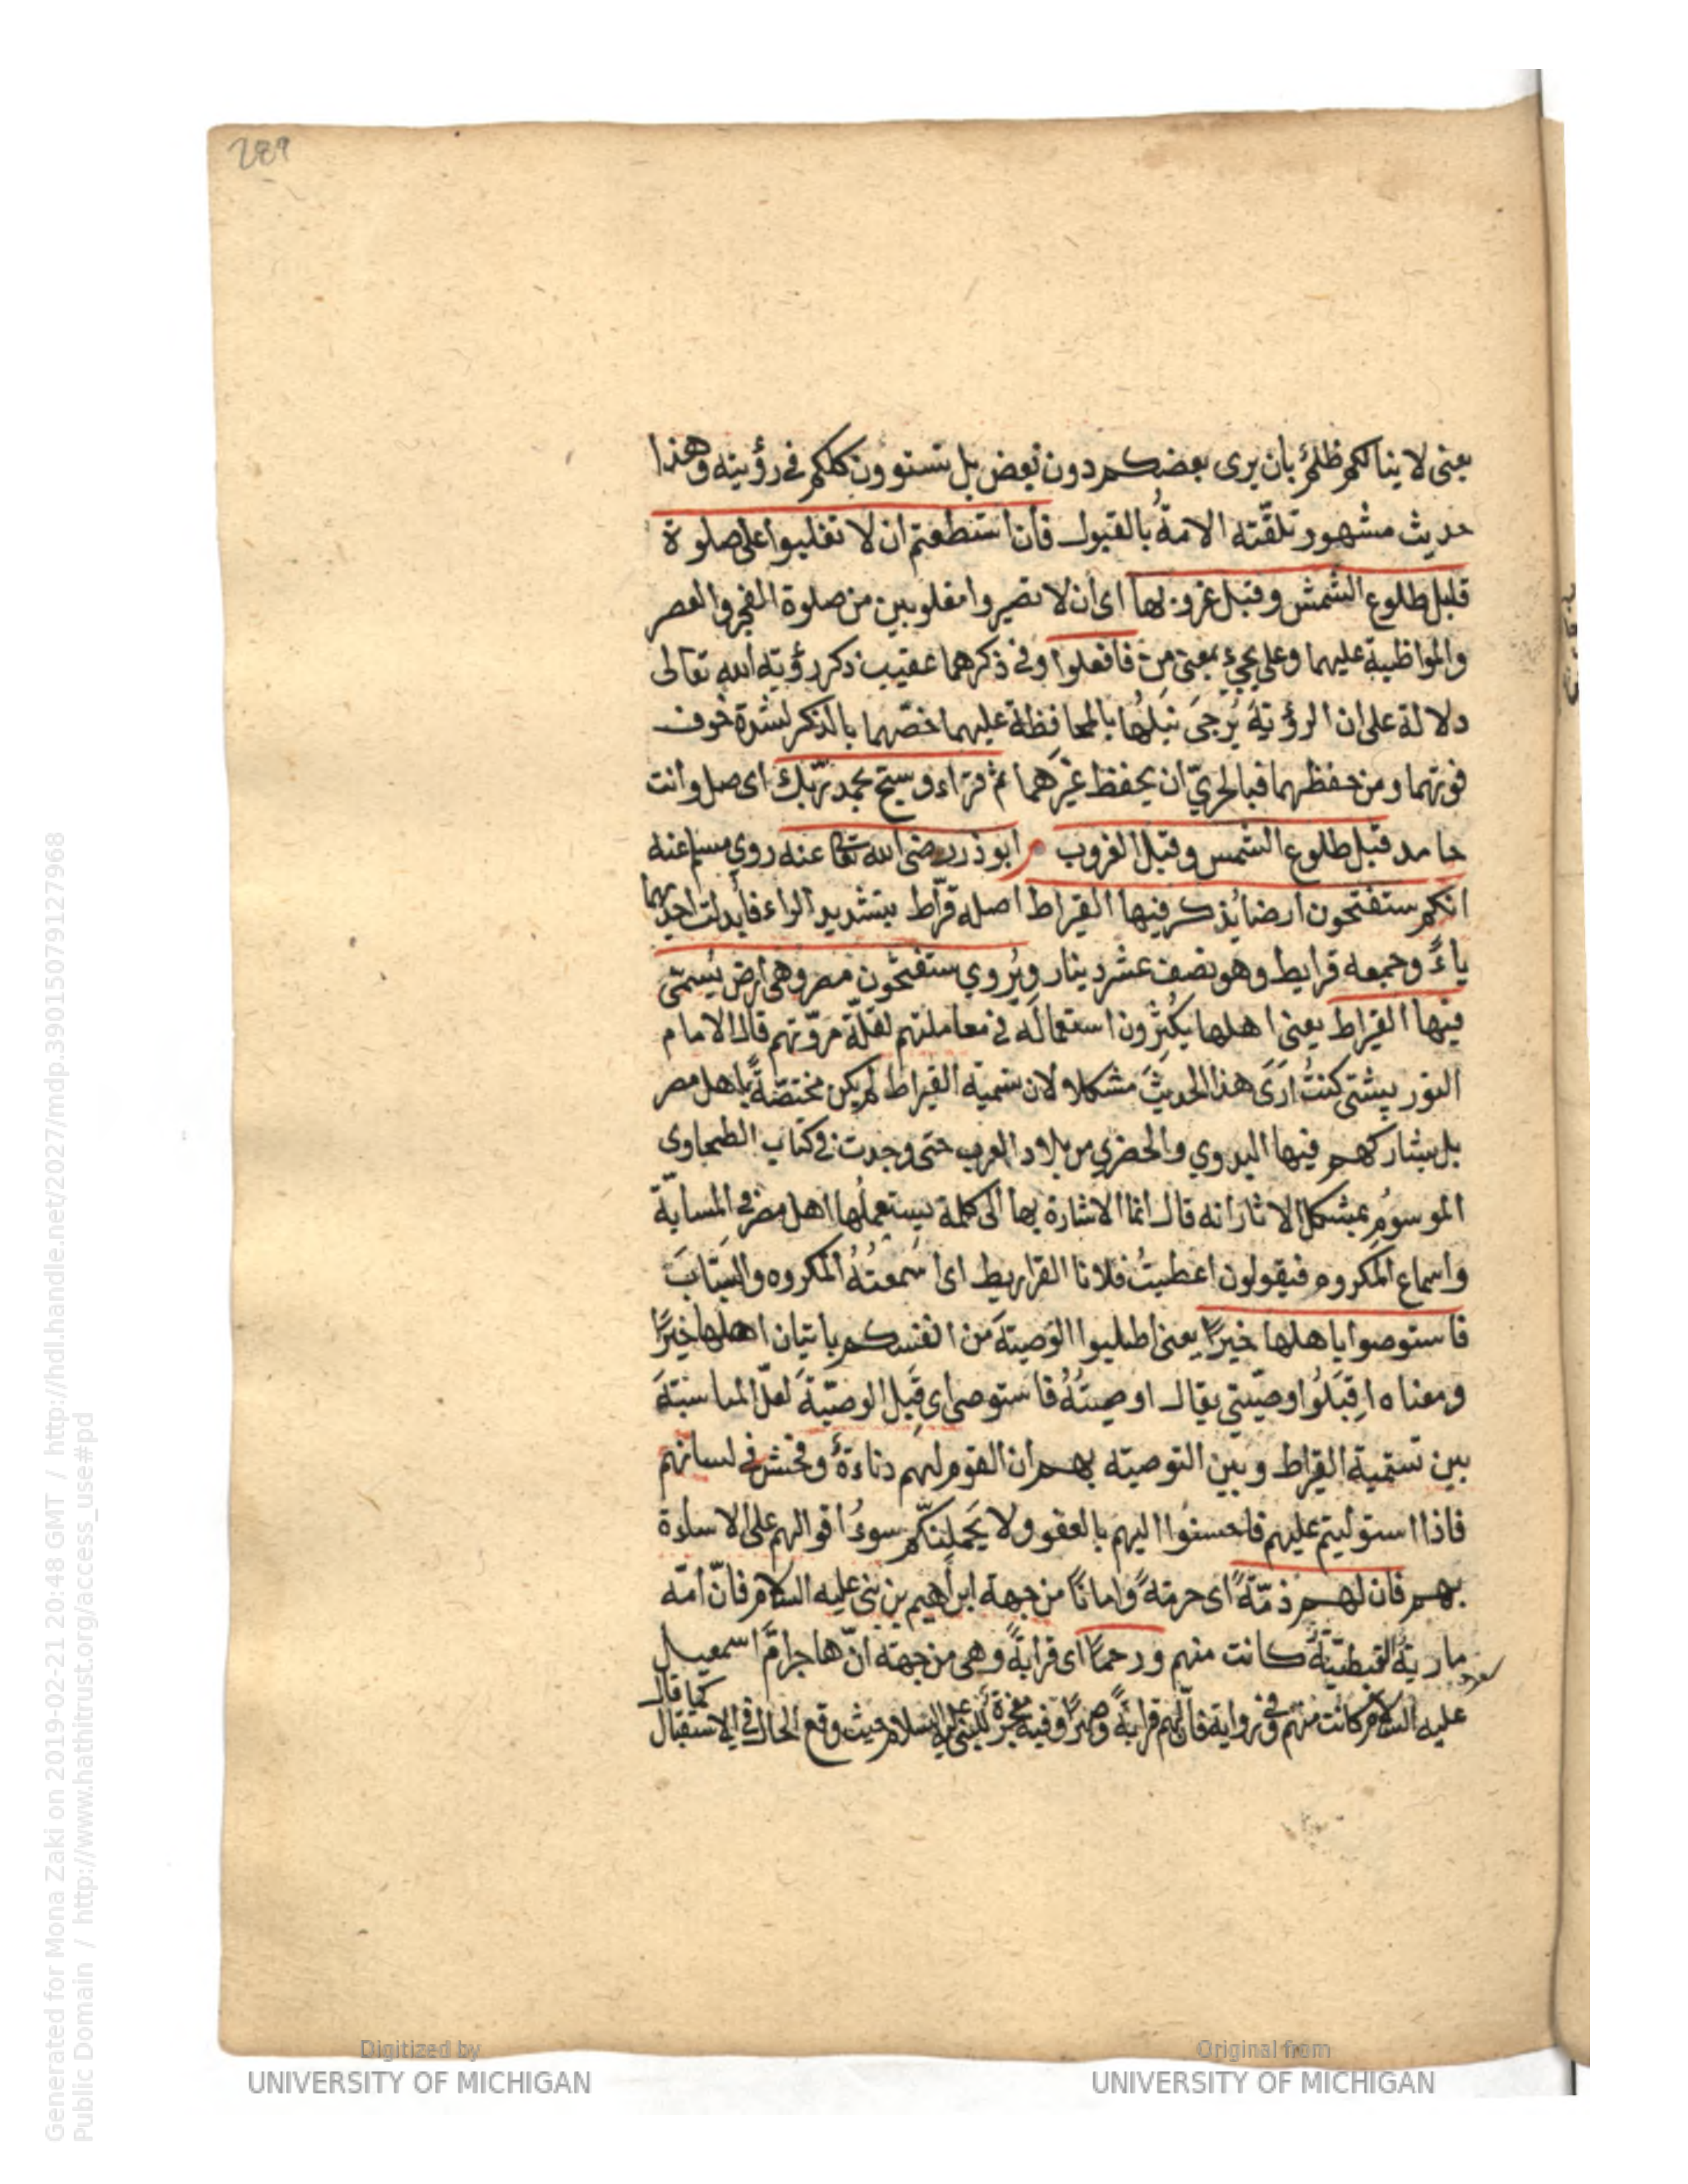 289
يعنى لا ينالكم ظلم بان يرى بعضكم دون بعض بل تستوون كلكم فى رؤيته وهذا
حديث مشهور تلقّته الامةُ بالقبول فان استطعتم ان لا تغلبوا على صلوة
قبل طلوع الشمس وقبل غروبها اى ان لا تصيروا مغلوبين من صلوة الفجر والعصر
والمواظبة عليهما وعلى يجيء بمعنى من فافعلوا وفى ذكرهما عقيب ذكر رؤية الله تعالى
دلالة على ان الرؤية يُرجىَ نيلُها بالمحافظة عليهما خصّهما بالذكر لشدة خوف
فوتهما ومن حفظهما فبالحريّ ان يحفظ غيرَهما ثم قراء وسبّح بحمد ربّك اى صل وانت
حامد قبل طلوع الشمس وقبل الغروب م ابو ذر رضى الله تعا عنه روي مسلم عنه
انكم ستفتحون ارضا يُذكر فيها القيراط اصله قرّاط بتشديد الراء فأبدلت احديهما
ياءً وجمعه قرايط وهو نصف عشر دينار ويُروي ستفتحون مصر وهى ارض يُسمّى
فيها القيراط يعنى اهلها يُكثِرون استعمالَه فى معاملتهم لقلّة مروّتهم قال الامام
التوربشتى كنتُ ارَى هذا الحديثَ مشكلا لان تسمية القيراط لم يكن مختصّةً باهل مصر
بل يشاركهم فيها البدوي والحضري من بلاد العرب حتى وجدت فى كتاب الطحاوى
الموسوُم بمشكل الاثار انه قال انما الاشارة بها الى كلمة يستعملُها اهل مصر فى المسابّة
واسماع المكروه فيقولون اعطيتُ فلانا القراريط اى اسمعتُهُ المكروه والسبابَ
فاستوصوا باهلها خيرًا يعنى اطلبوا الوصيّةَ من انفسكم باتيان اهلها خيرًا
ومعناه اقبَلُوا وصيّتى يقال اوصيتُهُ فاستوصى اى قَبِل الوصيّةَ لعلّ المناسبةَ
بين تسمية القيراط وبين التوصية بهم ان القوم لهم دناءةٌ وفحش فى لسانهم
فاذا استوليتم عليهم فاحسنوا اليهم بالعفو ولا يَحملِنكّم سوءُ اقوالهم على الاساءة
بهم فان لهم ذمّةً اى حرمةً وامانًا من جهة ابراهيم بن نبى عليه السلام فانّ امّه
مارية القبطيّةُ كانت منهم ورحمًا اى قرابةً وهى من جهة انّ هاجر امّ اسمعيل
عليه السلام كانت منهم وفى رواية فانّ لهم قرابةً وصهرًا وفيه معجزةٌ للنبى عليه السلام حيث وقع الحال فى الاستقبال
كما قال
Generated for Mona Zaki on 2019-02-21 20:48 GMT / http://hdl.handle.net/2027/mdp.39015079127968
Public Domain / http://www.hathitrust.org/access_use#pd
Digitized by
UNIVERSITY OF MICHIGAN
Original from
UNIVERSITY OF MICHIGAN